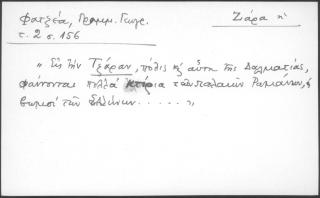 Φατζέα, Γραμμ. Γεωγρ.
τ. 2 σ. 156
Ζάρα ἡ
„ Εἰς τὴν Τζάραν, πόλις κ' αὕτη τῆς Δαλματίας,
φαίνονται πολλὰ κτίρια τῶν παλαιῶν Ρωμαίων, κ'
βωμοὶ τῶν Ἑλλήνων . . . . . . „